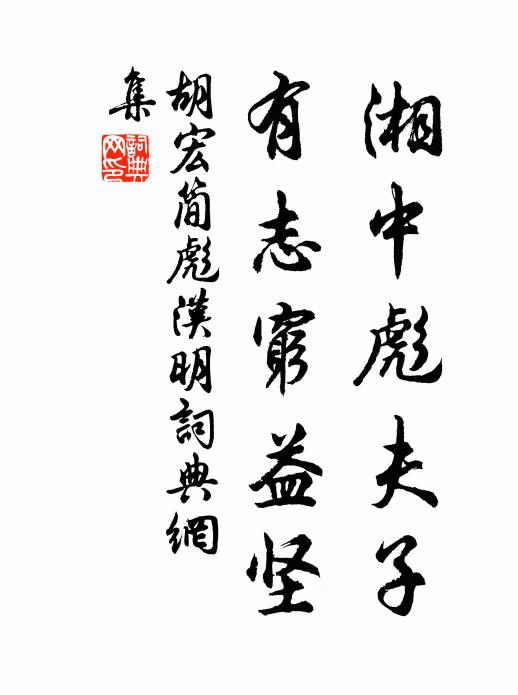 湘中彪夫子
有志窮益坚
胡宏简彪漢明詞典網
集
詞典網印